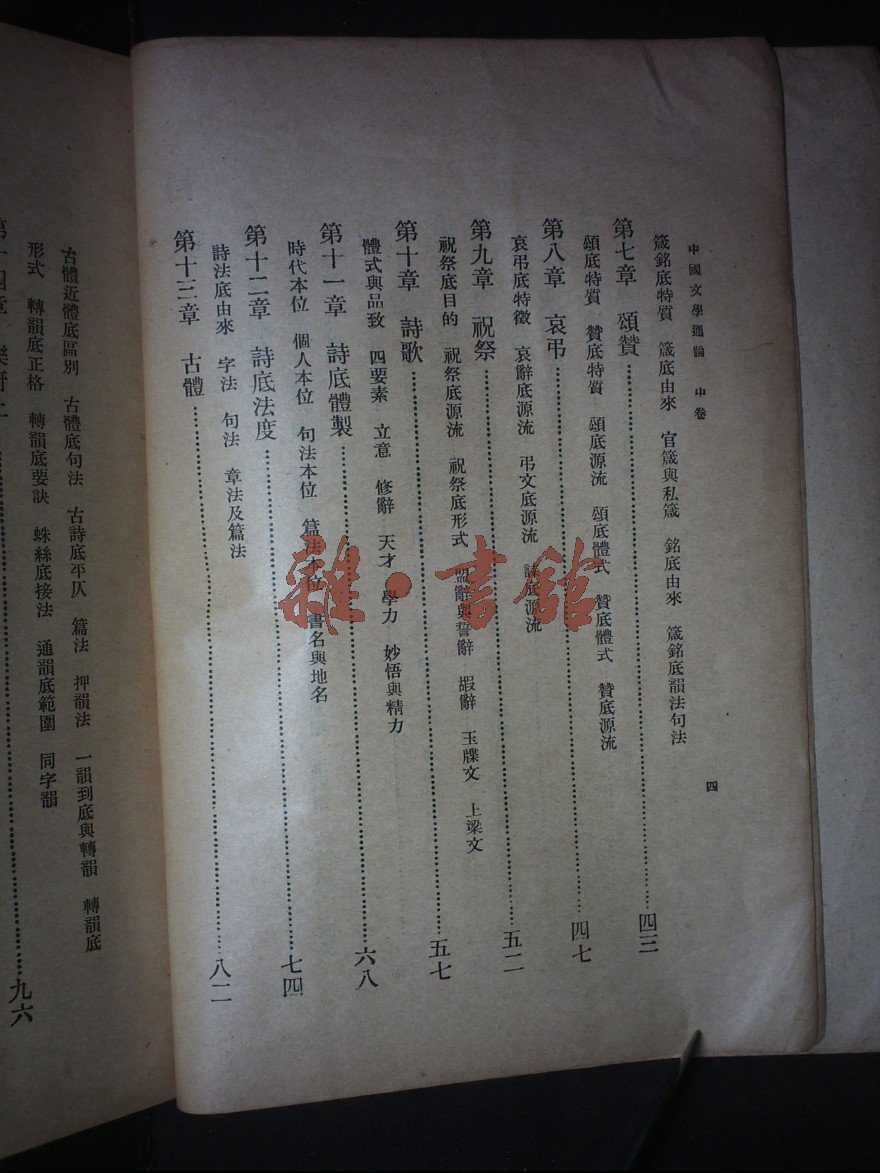 中國文學通論 中卷 四
箴銘底特質 箴底由來 官箴與私箴 銘底由來 箴銘底韻法句法
第七章 頌贊……四三
頌底特質 贊底特質 頌底源流 頌底體式 贊底體式 贊底源流
第八章 哀弔……四七
哀弔底特徵 哀辭底源流 弔文底源流 誄底源流
第九章 祝祭……五二
祝祭底目的 祝祭底源流 祝祭底形式 盟辭與誓辭 嘏辭 玉牒文 上梁文
第十章 詩歌……五七
體式與品致 四要素 立意 修辭 天才 學力 妙悟與精力
第十一章 詩底體製……六八
時代本位 個人本位 句法本位 篇法本位 書名與地名
第十二章 詩底法度……七四
詩法底由來 字法 句法 章法及篇法
第十三章 古體……八二
古體近體底區別 古體底句法 古詩底平仄 篇法 押韻法 一韻到底與轉韻 轉韻底
形式 轉韻底正格 轉韻底要訣 蛛絲底接法 通韻底範圍 同字韻
第十四章 樂府上……九六
雜·書館